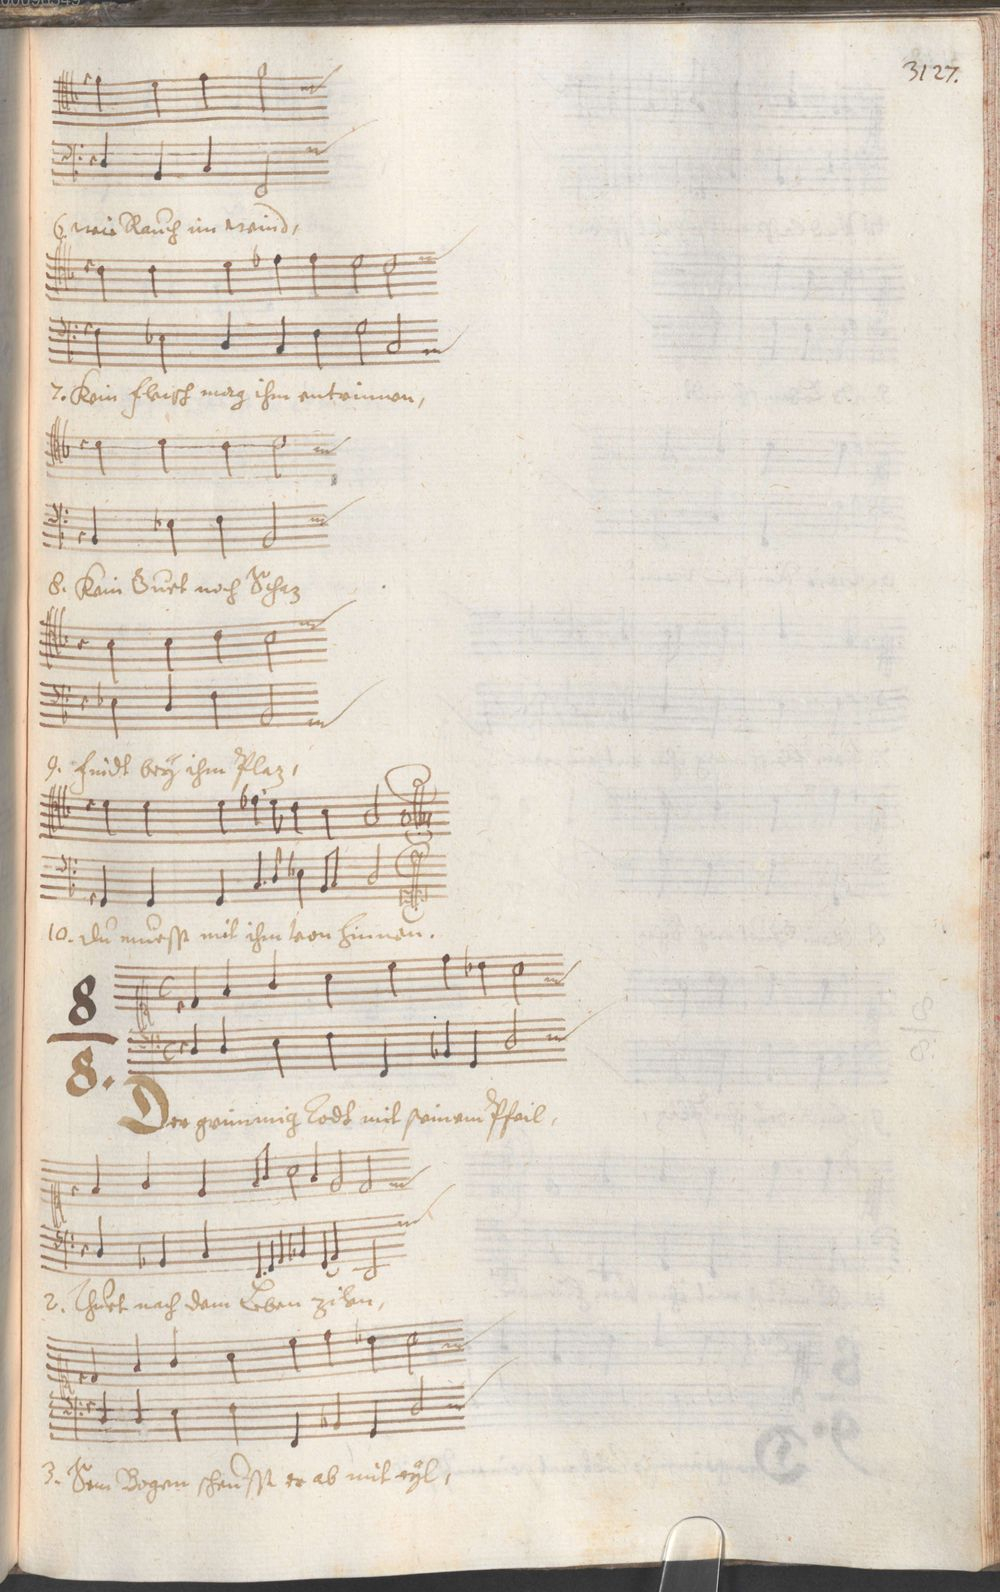 3127.
6. wie Rauch im wind,
7. Kein fleisch mag ihm entrinnen,
8. Kein Guet noch Schaz
9. findt bey ihm Plaz,
10. du muesst mit ihm von hinnen.
8
8.
Der grimmig Todt mit seinem Pfeil,
2. Thuet nach dem Leben zilen,
3. Sein Bogen scheusst er ab mit eyl,